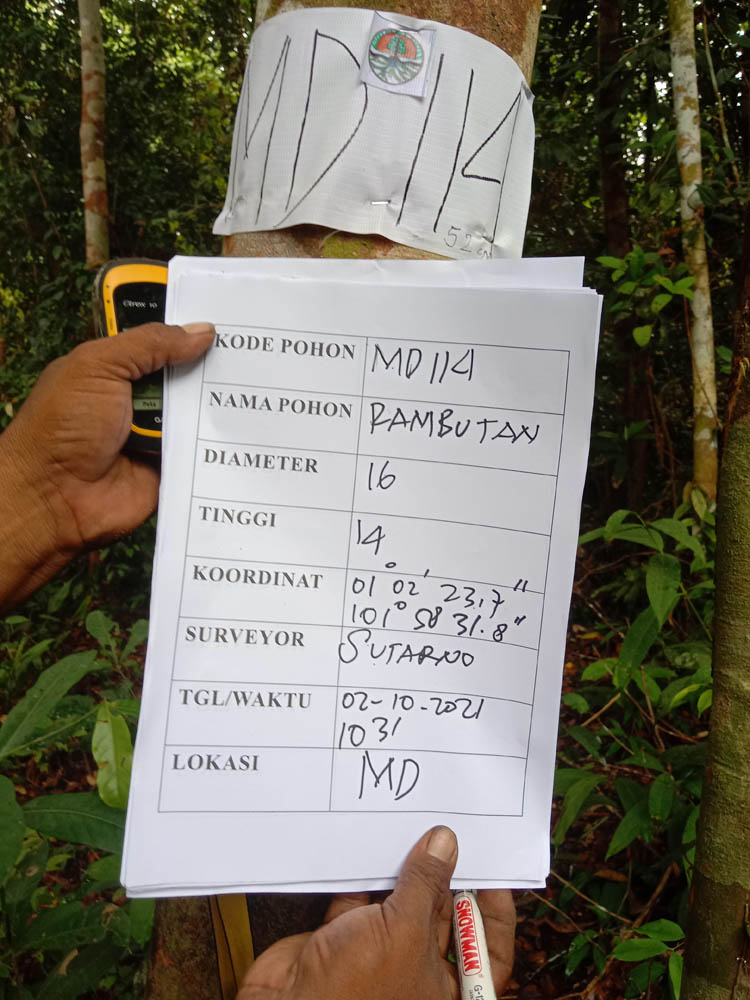 MD 114
52
etrex 10
KODE POHON MD 114
NAMA POHON RAMBUTAN
DIAMETER 16
TINGGI 14
KOORDINAT 01° 02' 23,7"
101° 58 31.8"
SURVEYOR SUTARNO
TGL/WAKTU 02-10-2021
1031
LOKASI MD
SNOWMAN